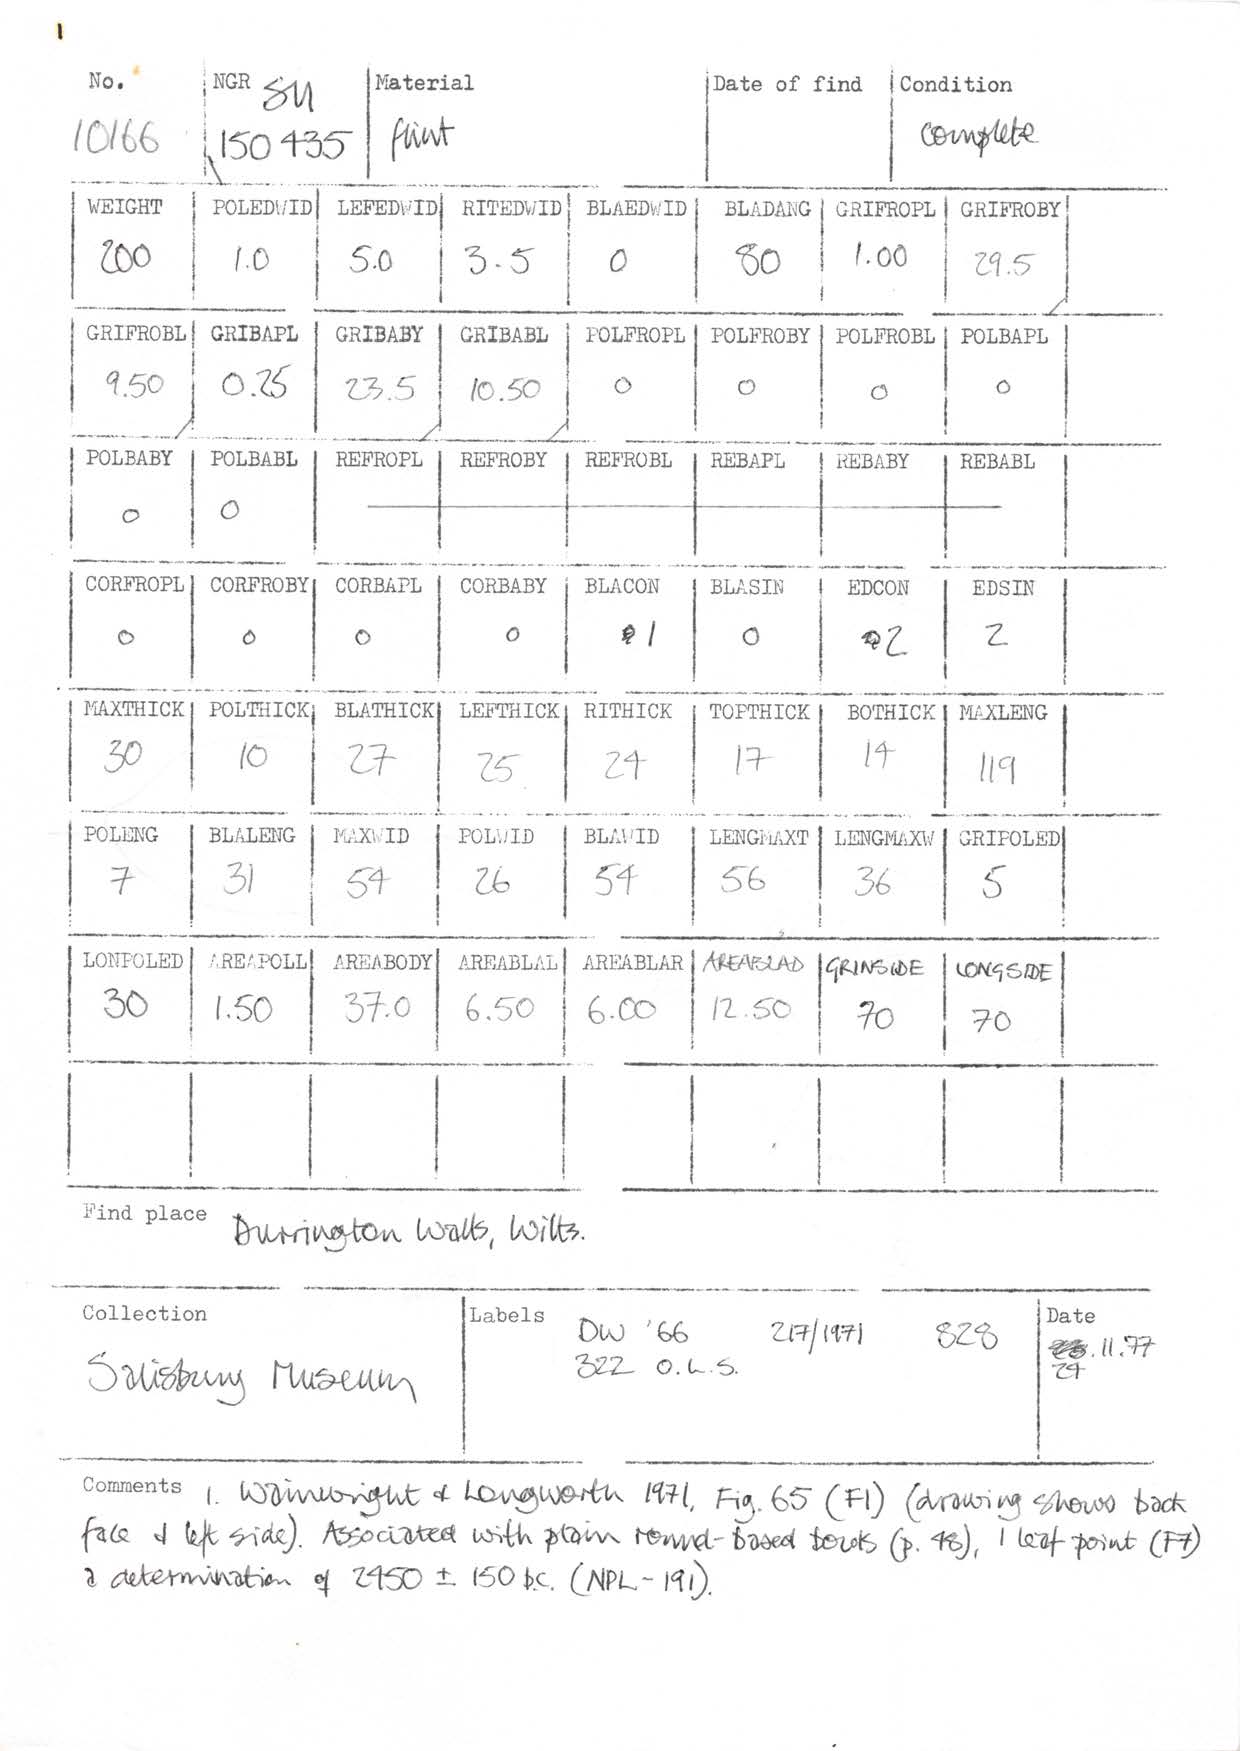 1
No. NGR SU Material Date of find Condition
10166 150 435 flint complete
WEIGHT POLEDWID LEFEDWID RITEDWID BLAEDWID BLADANG GRIFROPL GRIFROBY
200 1.0 5.0 3.5 0 80 1.00 29.5
GRIFROBL GRIBAPL GRIBABY GRIBABL POLFROPL POLFROBY POLFROBL POLBAPL
9.50 0.25 23.5 10.50 0 0 0 0
POLBABY POLBABL REFROPL REFROBY REFROBL REBAPL REBABY REBABL
0 0
CORFROPL CORFROBY CORBAPL CORBABY BLACON BLASIN EDCON EDSIN
0 0 0 0 1 0 2 2
MAXTHICK POLTHICK BLATHICK LEFTHICK RITHICK TOPTHICK BOTHICK MAXLENG
30 10 27 25 24 17 14 119
POLENG BLALENG MAXWID POLWID BLAWID LENGMAXT LENGMAXW GRIPOLED
7 31 54 26 54 56 36 5
LONPOLED AREAPOLL AREABODY AREABLAL AREABLAR AREABLAD GRINSIDE LONGSIDE
30 1.50 37.0 6.50 6.00 12.50 70 70
Find place Durrington Walls, Wilts.
Collection Labels Date
DW '66 217/1971 828 .11.77
322 O.L.S. 24
Salisbury Museum
Comments 1. Wainwright & Longworth 1971, Fig. 65 (F1) (drawing shows back
face & left side). Associated with plain round-based bowls (p. 48), 1 leaf point (F7)
& determination of 2450 ± 150 b.c. (NPL-191).